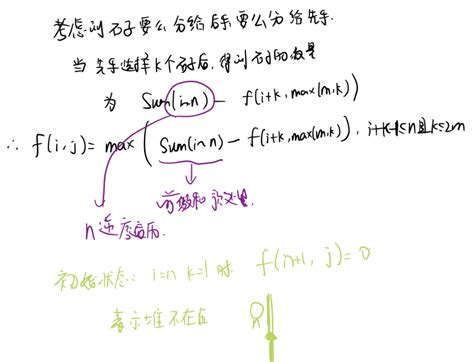 考虑到石子要么分给后手要么分给先手
当先手选择k个石子后,得到石子的数量
为 Sum(i~n) - f(i+k, max(m,k))
∴ f(i,j)= max ( Sum(i~n) - f(i+k, max(m,k)) , i+k-1≤n且k≤2m
前缀和预处理.
n逆序应用.
初始状态: i=n k=1 时 f(n+1, j)=0
表示堆不存在
n